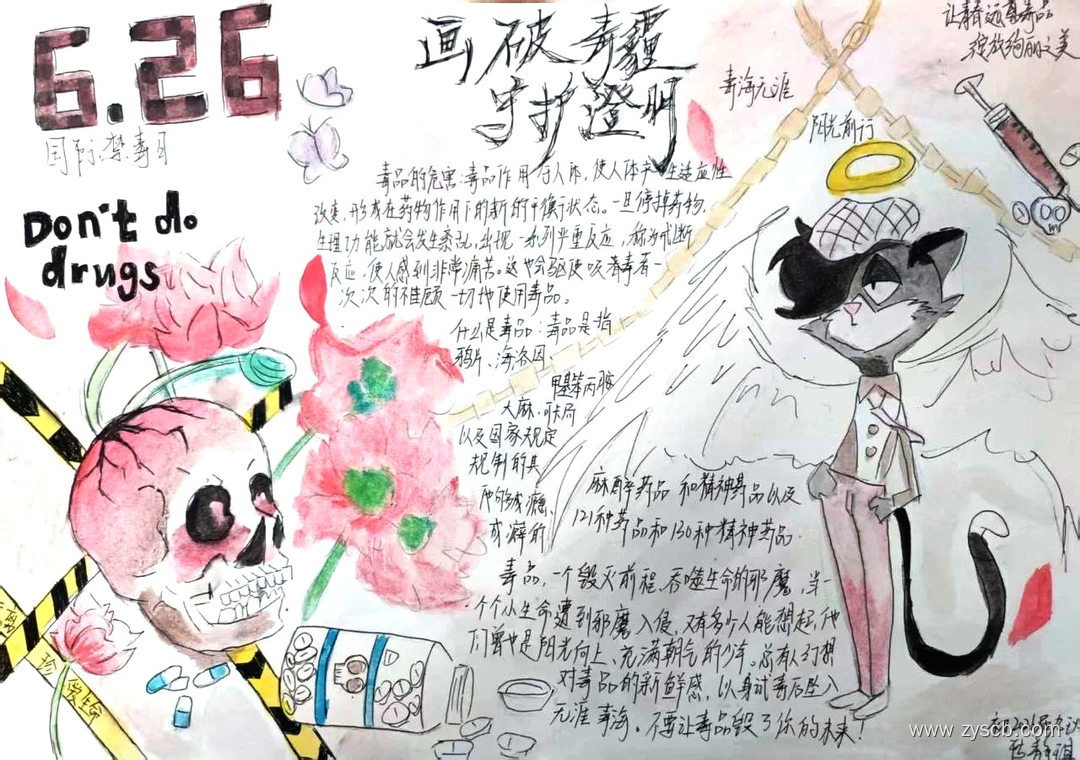 6.26
国际禁毒日
Don't do
drugs
画破毒疆
守护澄明
让青春远离毒品
绽放绚丽之美
毒海无涯
阳光前行
毒品的危害:毒品作用于人体,使人体产生适应性
改变,形成在药物作用下的新的平衡状态。一旦停掉药物,
生理功能就会发生紊乱,出现一系列严重反应,称为戒断
反应,使人感到非常痛苦。这也会驱使吸毒者一
次次的不顾一切地使用毒品。
什么是毒品:毒品是指
鸦片、海洛因、
甲基苯丙胺
大麻、可卡因
以及国家规定
规制的其
他的成瘾、
成癖的
麻醉药品和精神药品以及
121种药品和130种精神药品
毒品,一个毁灭前程、吞噬生命的邪魔,当一
个个小生命遭到邪魔入侵,又有多少人能想起,他
们曾也是阳光向上、充满朝气的少年。总有人幻想
对毒品的新鲜感,以身试毒后坠入
无涯毒海,不要让毒品毁了你的未来!
珍爱生命
www.zyscb.com